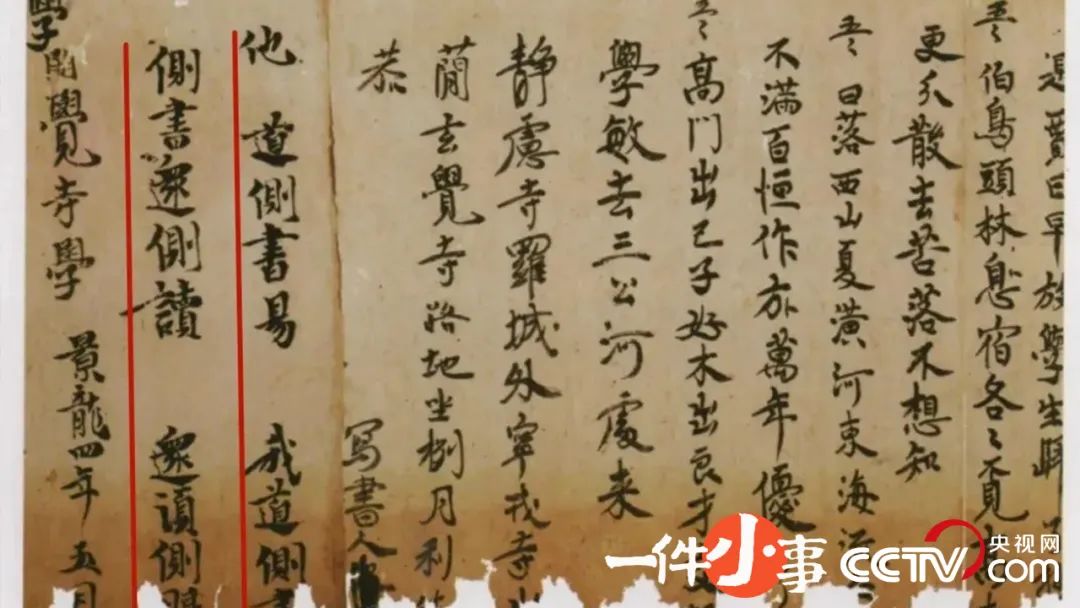 是賈日早放學生歸
五言 伯鳥頭林息宿各々覓高
更分散去苦落不想知
五言 日落西山夏潢河東海流
不滿百恒作万萬年優
五言 高門出己子好木出良才交
學敏去三公河處來
靜慮寺羅城外寧戎寺
蕳去覺寺路地坐捌月利
恭 寫書人
他道側書易 我道側書
側書還側讀 還須側眼
學開覺寺學 景龍四年五月
一件小事
CCTV 央视网
com